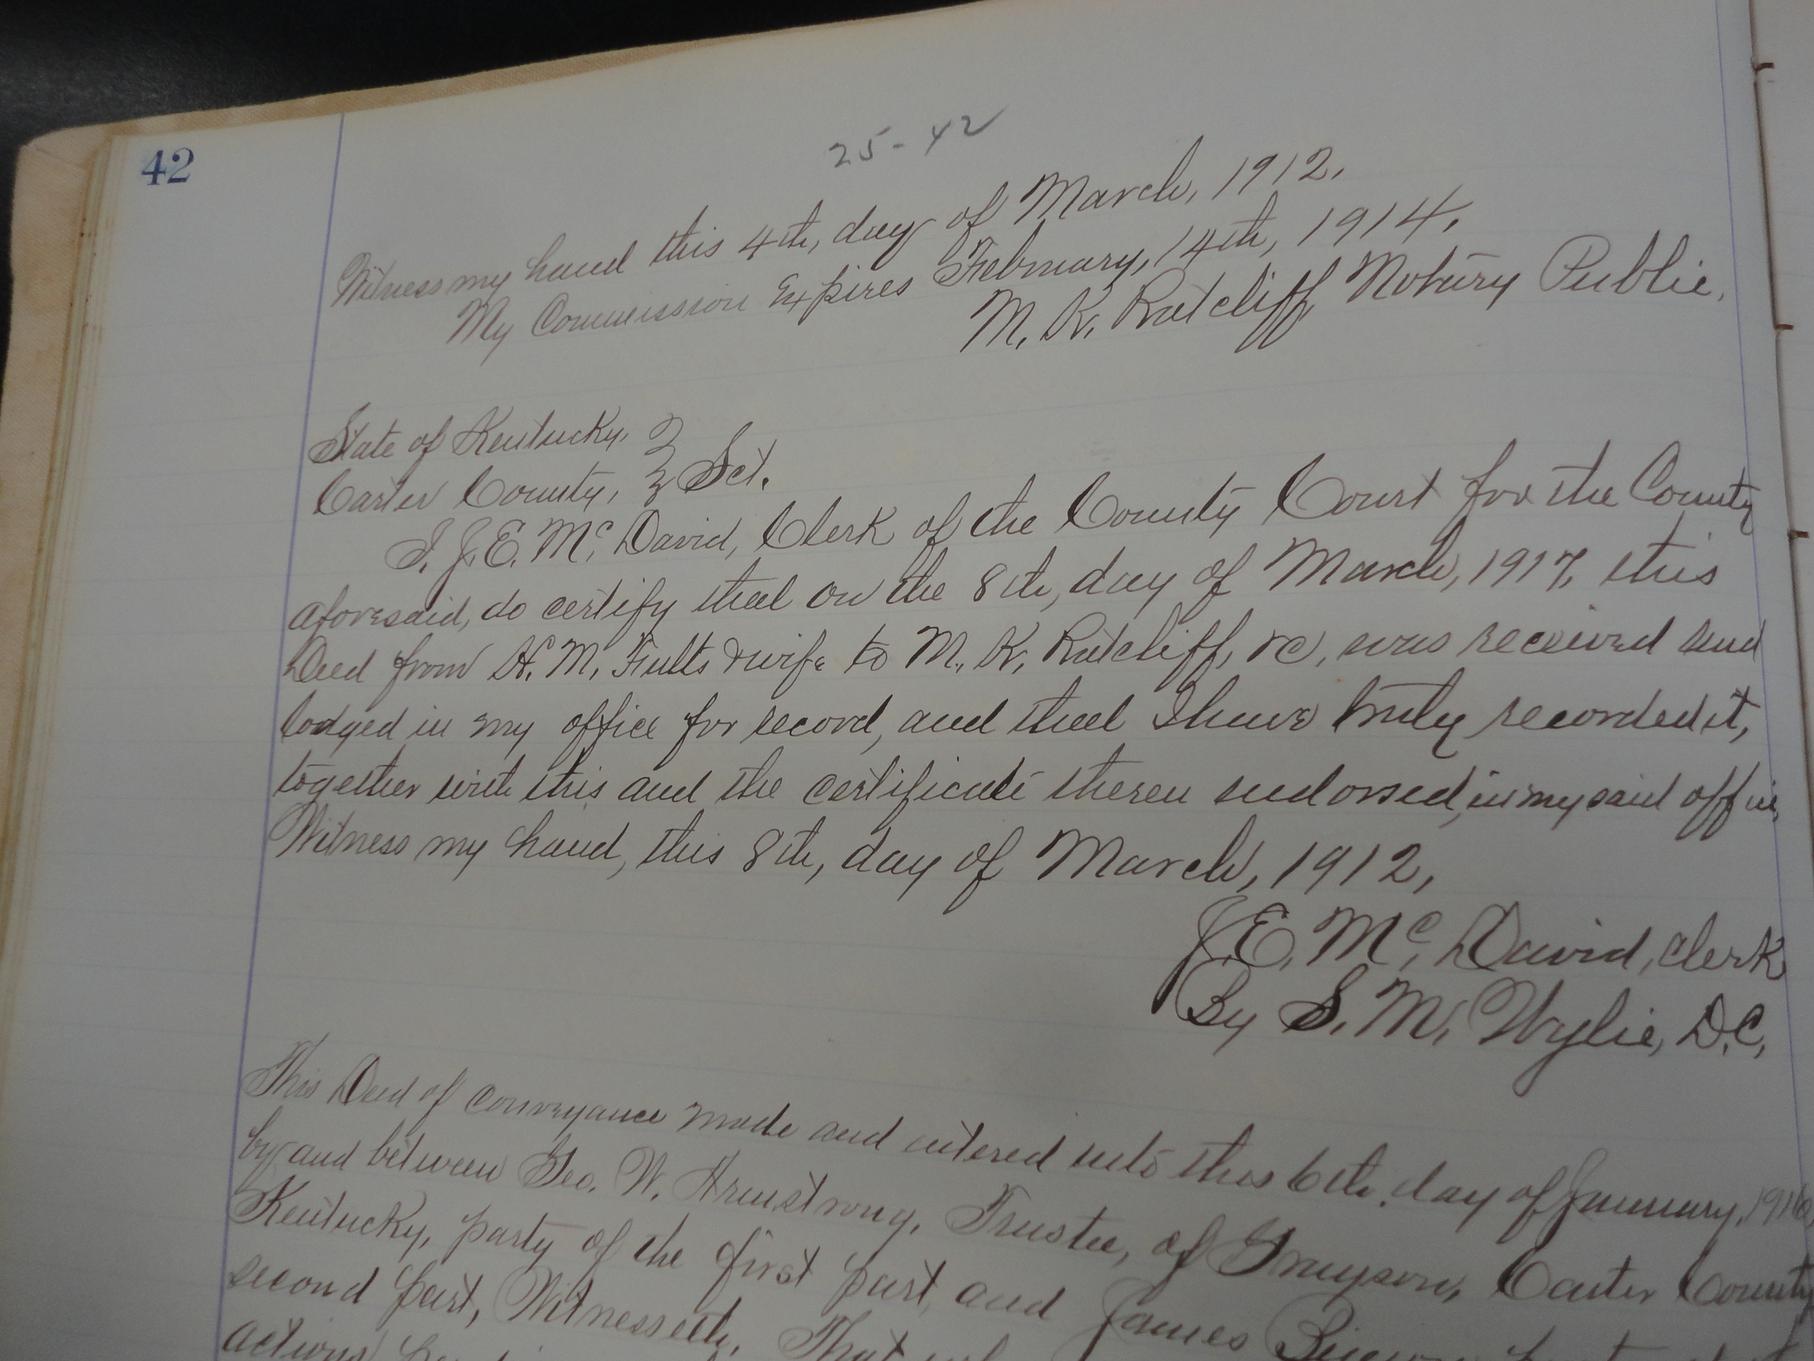 42
25-42
Witness my hand this 4th, day of March, 1912,
My Commission Expires February, 14th, 1914,
M. K. Ratcliff, Notary Public,
State of Kentucky,
Carter County, Sct.
I, J.E. Mc, David, Clerk of the County Court for the County
aforesaid, do certify that on the 8th, day of March, 1917, this
Deed from H. M. Fults & wife to M. K. Ratcliff, &C, was received and
lodged in my office for record, and that I have truly recorded it,
together with this and the certificate thereu endorsed, in my said office,
Witness my hand, this 8th, day of March, 1912,
J.E. Mc, David, Clerk
By S. M. Wylie, D.C,
This Deed of conveyance made and entered into this 6th, day of January, 1916
by and between Geo. W. Armstrong, Trustee, of Grayson, Carter County
Kentucky, party of the first part and James
second part, Witnesseth, That
actions